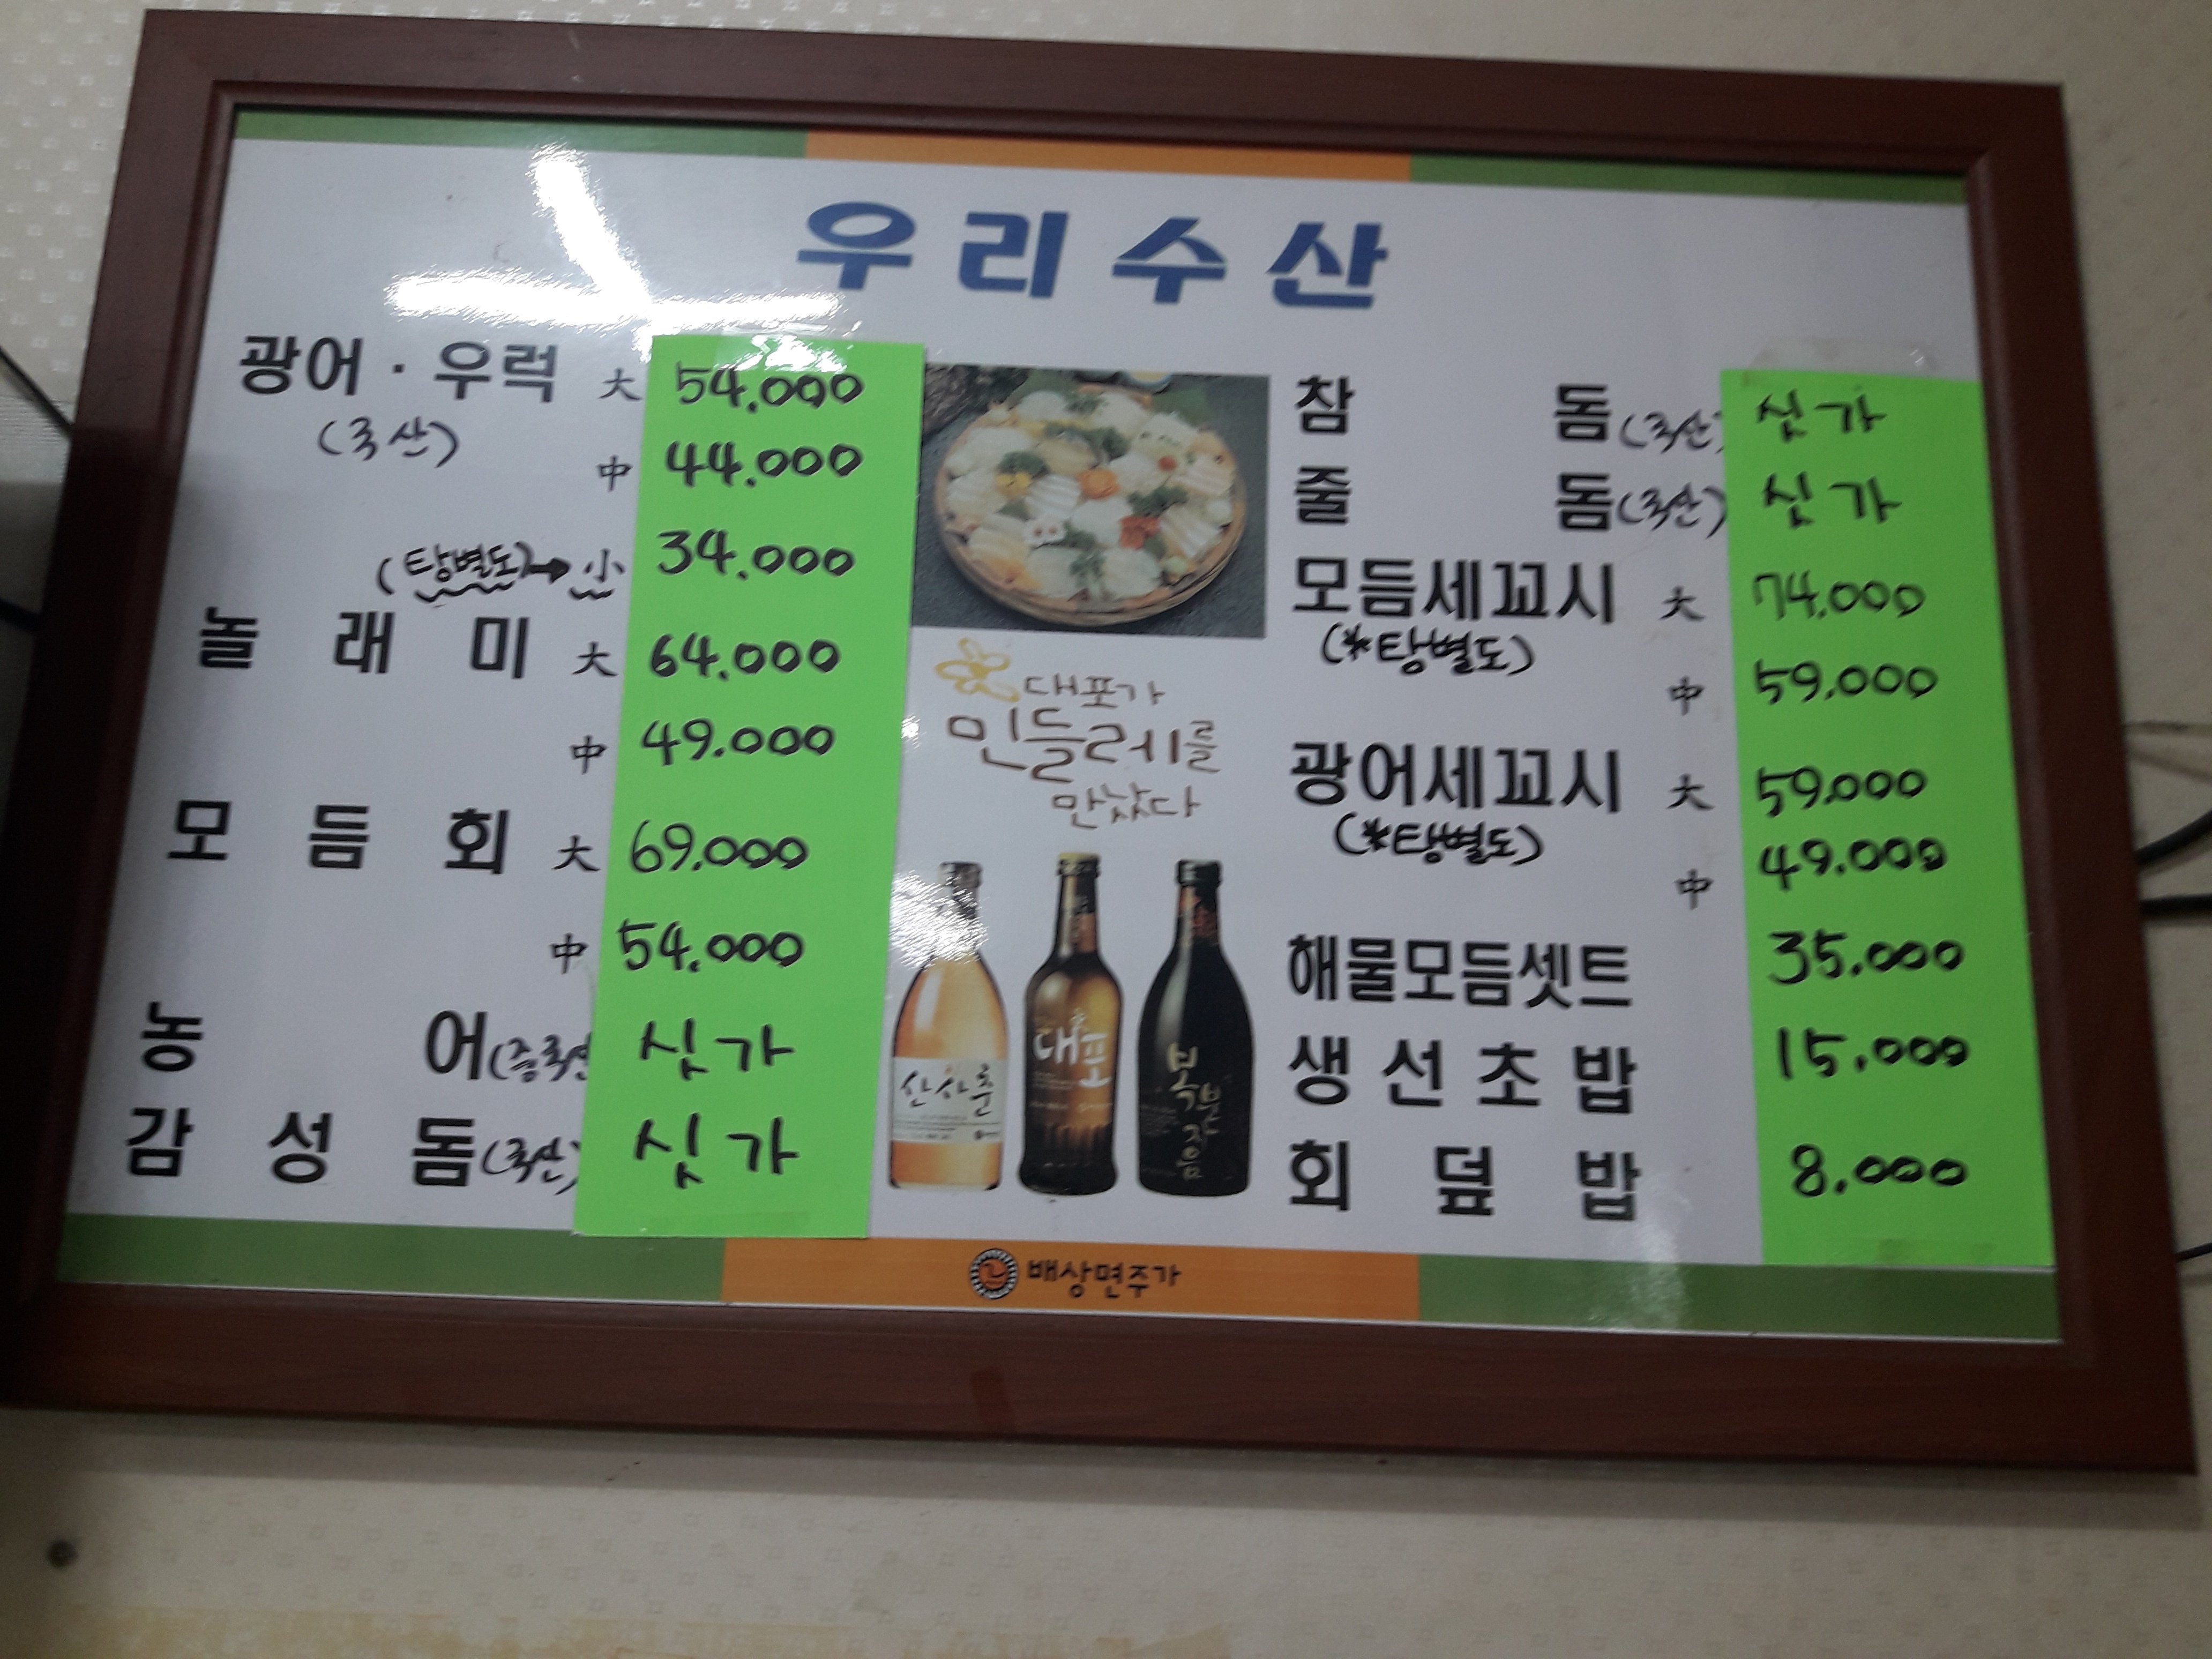 우리수산
광어·우럭 大 54.000
(국산)
中 44.000
(탕별도)→小 34.000
놀래미 大 64.000
中 49.000
모듬회 大 69.000
中 54.000
농어(중국산 싯가
감성돔(국산) 싯가
대포가
민들레를
만났다
산사춘
대포
복분자음
참돔(국산) 싯가
줄돔(국산) 싯가
모듬세꼬시 大 74.000
(*탕별도)
中 59.000
광어세꼬시 大 59.000
(*탕별도)
中 49.000
해물모듬셋트 35.000
생선초밥 15.000
회덮밥 8.000
배상면주가